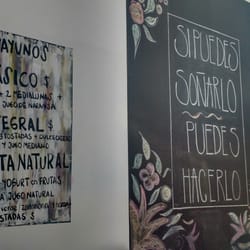 AYUNOS
ÁSICO $
+ 2 MEDIALUNAS +
JUGO DE NARANJA
EGRAL $
TOSTADAS + DULCE
Y JUGO MEDIANO
TA NATURAL
YOGURT CON FRUTAS
JUGO NATURAL
STADAS $
SI PUEDES
SOÑARLO
PUEDES
HACERLO